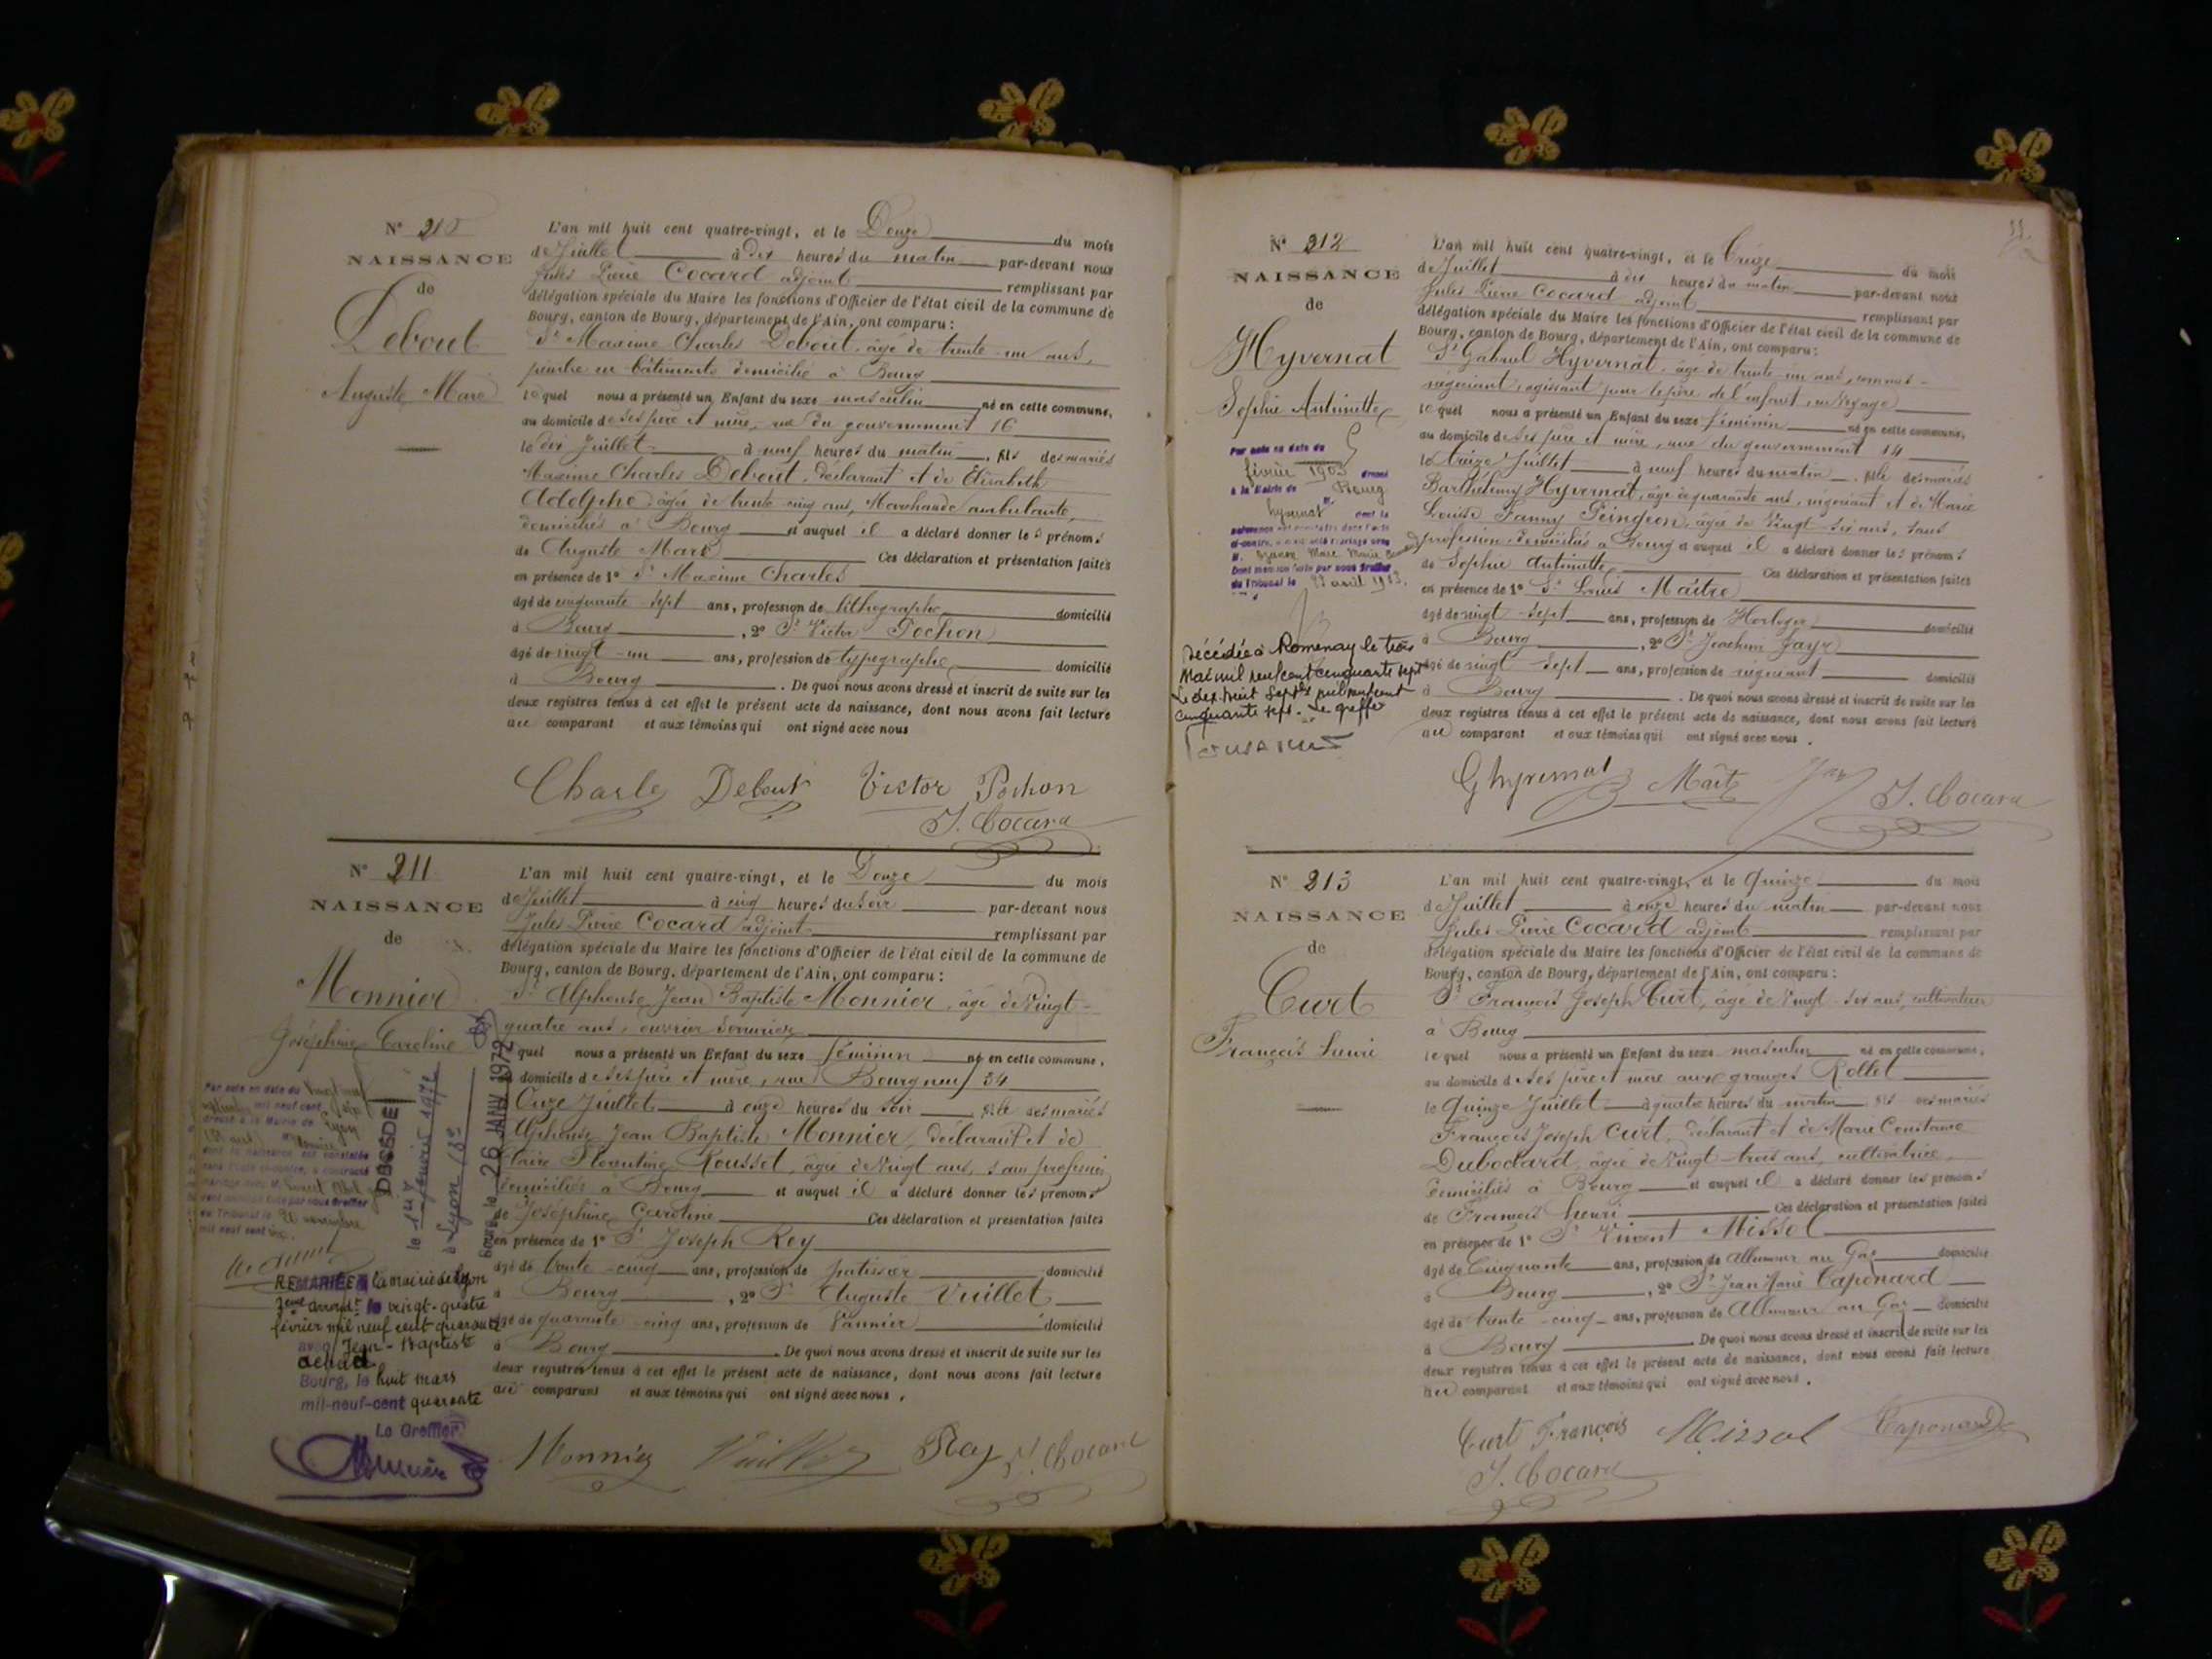 N° 210
NAISSANCE
de
Debout
Auguste Marc
L'an mil huit cent quatre-vingt, et le Douze du mois
de Juillet à dix heures du matin par-devant nous
Jules Pierre Cocard adjoint remplissant par
délégation spéciale du Maire les fonctions d'Officier de l'état civil de la commune de
Bourg, canton de Bourg, département de l'Ain, ont comparu :
Sr Maxime Charles Debout, âgé de trente-un ans,
peintre en bâtiments domicilié à Bourg
lequel nous a présenté un Enfant du sexe masculin né en cette commune,
au domicile de ses père et mère, rue du gouvernement 16
le dix Juillet à neuf heures du matin, fils des mariés
Maxime Charles Debout, déclarant et de Elisabeth
Adolphe, âgée de trente-cinq ans, Marchande ambulante,
domiciliés à Bourg et auquel il a déclaré donner les prénoms
de Auguste Marc Ces déclaration et présentation faites
en présence de 1° Sr Maxime Charles
âgé de cinquante-sept ans, profession de lithographe domicilié
à Bourg, 2° Sr Victor Pochon
âgé de vingt-un ans, profession de typographe domicilié
à Bourg. De quoi nous avons dressé et inscrit de suite sur les
deux registres tenus à cet effet le présent acte de naissance, dont nous avons fait lecture
au comparant et aux témoins qui ont signé avec nous
Charles Debout Victor Pochon
J. Cocard
N° 211
NAISSANCE
de
Monnier
Joséphine Caroline
L'an mil huit cent quatre-vingt, et le Douze du mois
de Juillet à cinq heures du soir par-devant nous
Jules Pierre Cocard adjoint remplissant par
délégation spéciale du Maire les fonctions d'Officier de l'état civil de la commune de
Bourg, canton de Bourg, département de l'Ain, ont comparu :
Sr Alphonse Jean Baptiste Monnier, âgé de Vingt-
quatre ans, ouvrier serrurier
lequel nous a présenté un Enfant du sexe féminin né en cette commune,
au domicile de ses père et mère, rue Bourgneuf 34
le Onze Juillet à onze heures du soir fille des mariés
Alphonse Jean Baptiste Monnier, déclarant et de
Claire Florentine Rousset, âgée de Vingt ans, sans profession
domiciliés à Bourg et auquel il a déclaré donner les prénoms
de Joséphine Caroline Ces déclaration et présentation faites
en présence de 1° Sr Joseph Rey
âgé de trente-cinq ans, profession de patissier domicilié
à Bourg, 2° Sr Auguste Vuillet
âgé de quarante-cinq ans, profession de Vannier domicilié
à Bourg. De quoi nous avons dressé et inscrit de suite sur les
deux registres tenus à cet effet le présent acte de naissance, dont nous avons fait lecture
au comparant et aux témoins qui ont signé avec nous.
Monnier Vuillet Rey J. Cocard
Par acte en date du vingt neuf
mil neuf cent
dressé à la Mairie de Lyon
DECEDEE
le 1er février 1972
à Lyon
Bourg le 26 JANV 1972
REMARIEE à la mairie de Lyon
3ème arrondt le vingt-quatre
février mil neuf cent quarante
avec Jean-Baptiste
Bourg, le huit mars
mil-neuf-cent quarante
Le Greffier
N° 212
NAISSANCE
de
Hyvernat
Sophie Antoinette
Par acte en date du
février 1903 dressé
à la Mairie de Bourg
Hyvernat dont la
Dont mention faite par nous Greffier
du Tribunal le avril 1903.
Décédée à Romenay le trois
Mai mil neuf cent cinquante sept
Le dix huit Septbre mil neuf cent
cinquante sept. Le greffier
L'an mil huit cent quatre-vingt, et le Treize du mois
de Juillet à dix heures du matin par-devant nous
Jules Pierre Cocard adjoint remplissant par
délégation spéciale du Maire les fonctions d'Officier de l'état civil de la commune de
Bourg, canton de Bourg, département de l'Ain, ont comparu :
Sr Gabriel Hyvernat, âgé de trente-un ans, commis-
négociant, agissant pour le père de l'enfant, en voyage
lequel nous a présenté un Enfant du sexe féminin né en cette commune,
au domicile de ses père et mère, rue du gouvernement 14
le treize Juillet à neuf heures du matin, fille des mariés
Barthélemy Hyvernat, âgé de quarante ans, négociant et de Marie
Louise Fanny Peingeon, âgée de Vingt-six ans, sans
profession domiciliés à Bourg et auquel il a déclaré donner les prénoms
de Sophie Antoinette Ces déclaration et présentation faites
en présence de 1° Sr Louis Maître
âgé de vingt-sept ans, profession de Horloger domicilié
à Bourg, 2° Sr Joachim Jayr
âgé de vingt-sept ans, profession de négociant domicilié
à Bourg. De quoi nous avons dressé et inscrit de suite sur les
deux registres tenus à cet effet le présent acte de naissance, dont nous avons fait lecture
au comparant et aux témoins qui ont signé avec nous.
G Hyvernat Maître Jayr J. Cocard
N° 213
NAISSANCE
de
Curt
François henri
L'an mil huit cent quatre-vingt, et le Quinze du mois
de Juillet à onze heures du matin par-devant nous
Jules Pierre Cocard adjoint remplissant par
délégation spéciale du Maire les fonctions d'Officier de l'état civil de la commune de
Bourg, canton de Bourg, département de l'Ain, ont comparu :
Sr François Joseph Curt, âgé de Vingt-six ans, cultivateur
à Bourg
lequel nous a présenté un Enfant du sexe masculin né en cette commune,
au domicile de ses père et mère aux granges Rollet
le Quinze Juillet à quatre heures du matin fils des mariés
François Joseph Curt, déclarant et de Marie Constance
Dubochard, âgée de Vingt-trois ans, cultivatrice,
domiciliés à Bourg et auquel il a déclaré donner les prénoms
de François henri Ces déclaration et présentation faites
en présence de 1° Sr Vincent Missol
âgé de Cinquante ans, profession de Allumeur au Gaz domicilié
à Bourg, 2° Sr Jean Marie Caponard
âgé de trente-cinq ans, profession de Allumeur au Gaz domicilié
à Bourg De quoi nous avons dressé et inscrit de suite sur les
deux registres tenus à cet effet le présent acte de naissance, dont nous avons fait lecture
au comparant et aux témoins qui ont signé avec nous.
Curt François Missol Caponard
J. Cocard